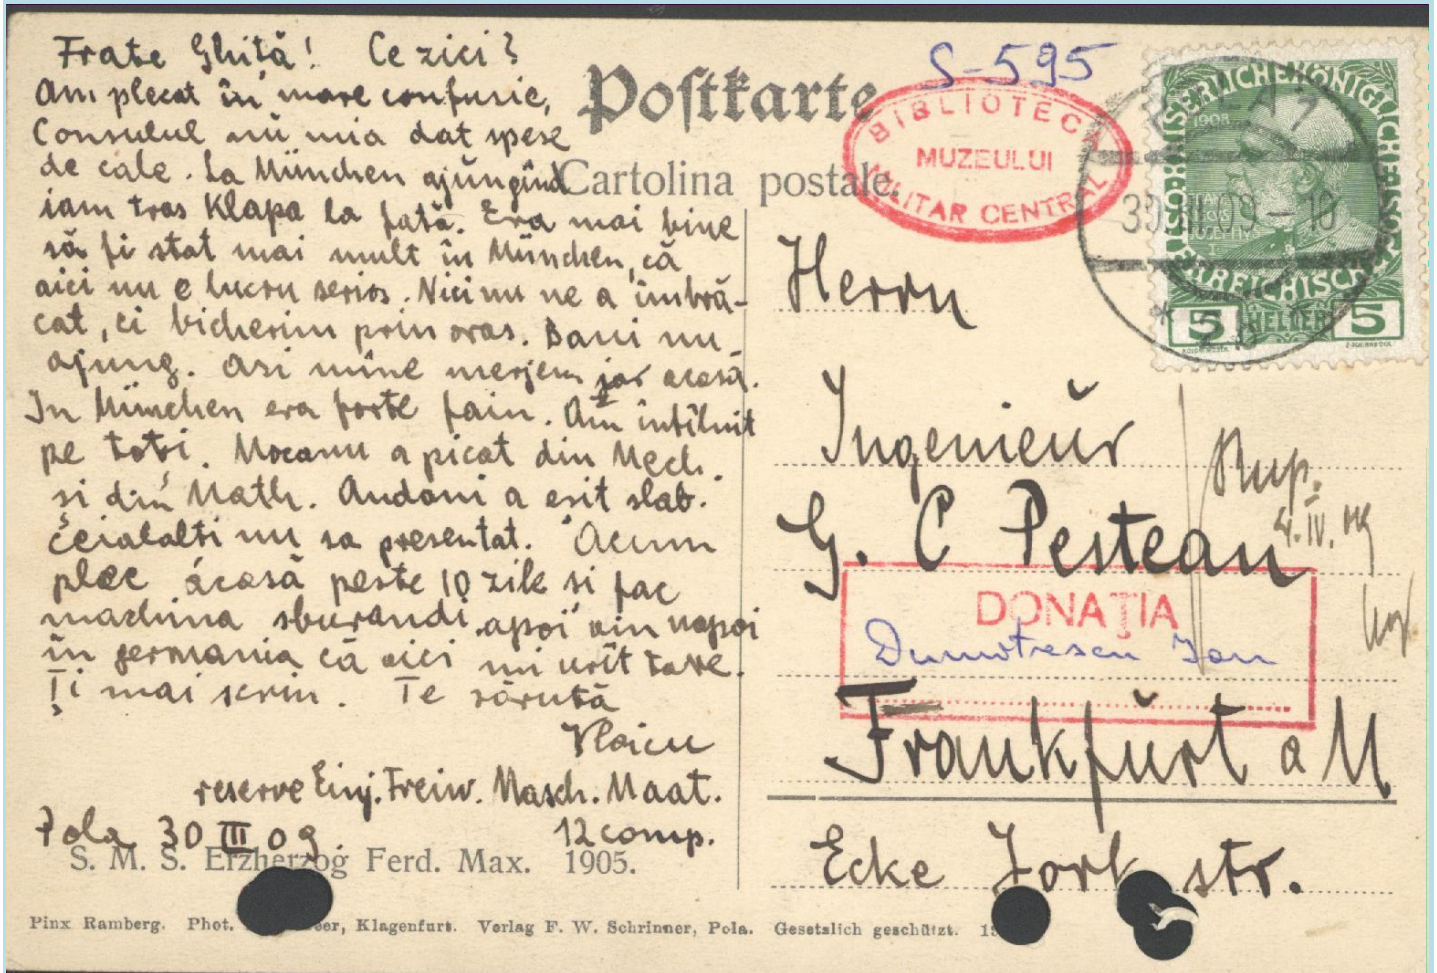 Frate Ghiță! Ce zici?
Am plecat în mare confusie,
Consulul nŭ mia dat spese
de cale. La Mŭnchen ajŭngînd
iam tras Klapa la fată. Era mai bine
să fi stat mai mult în Mŭnchen, că
aici nu e lucru serios. Nici nu ne a îmbră-
cat, ci bicherim prin oras. Bani nu
ajung. Asi mîne merjem jar acasă.
In Mŭnchen era forte fain. Am întîlnit
pe totri. Mocanu a picat din Mech.
si din Math. Andoni a esit slab.
Ceialalti nu sa presentat. Acum
plec acasă peste 10 zile si fac
machina sburandi, apoi vin napoi
în germania că aici mi urît tare.
Ți mai scriu. Te sărută
Vlaicu
reserve Einj. Freiw. Masch. Maat.
Pola 30 III 09. 12 comp.
S. M. S. Erzherzog Ferd. Max. 1905.
Pinx Ramberg. Phot. Klagenfurt. Verlag F. W. Schrinner, Pola. Gesetzlich geschützt.
Postkarte
Cartolina postale.
S-595
BIBLIOTECA
MUZEULUI
MILITAR CENTRAL
KAISERLICHE KÖNIGLICHE
1908
ÖSTERREICHISCHE
5 HELLER 5
30 III 09 - 10
Herrn
Ingenieŭr
G. C Pestean
Rup.
4. IV. 09
DONAȚIA
Dumitrescu Ion
Frankfŭrt a M
Ecke Jork str.